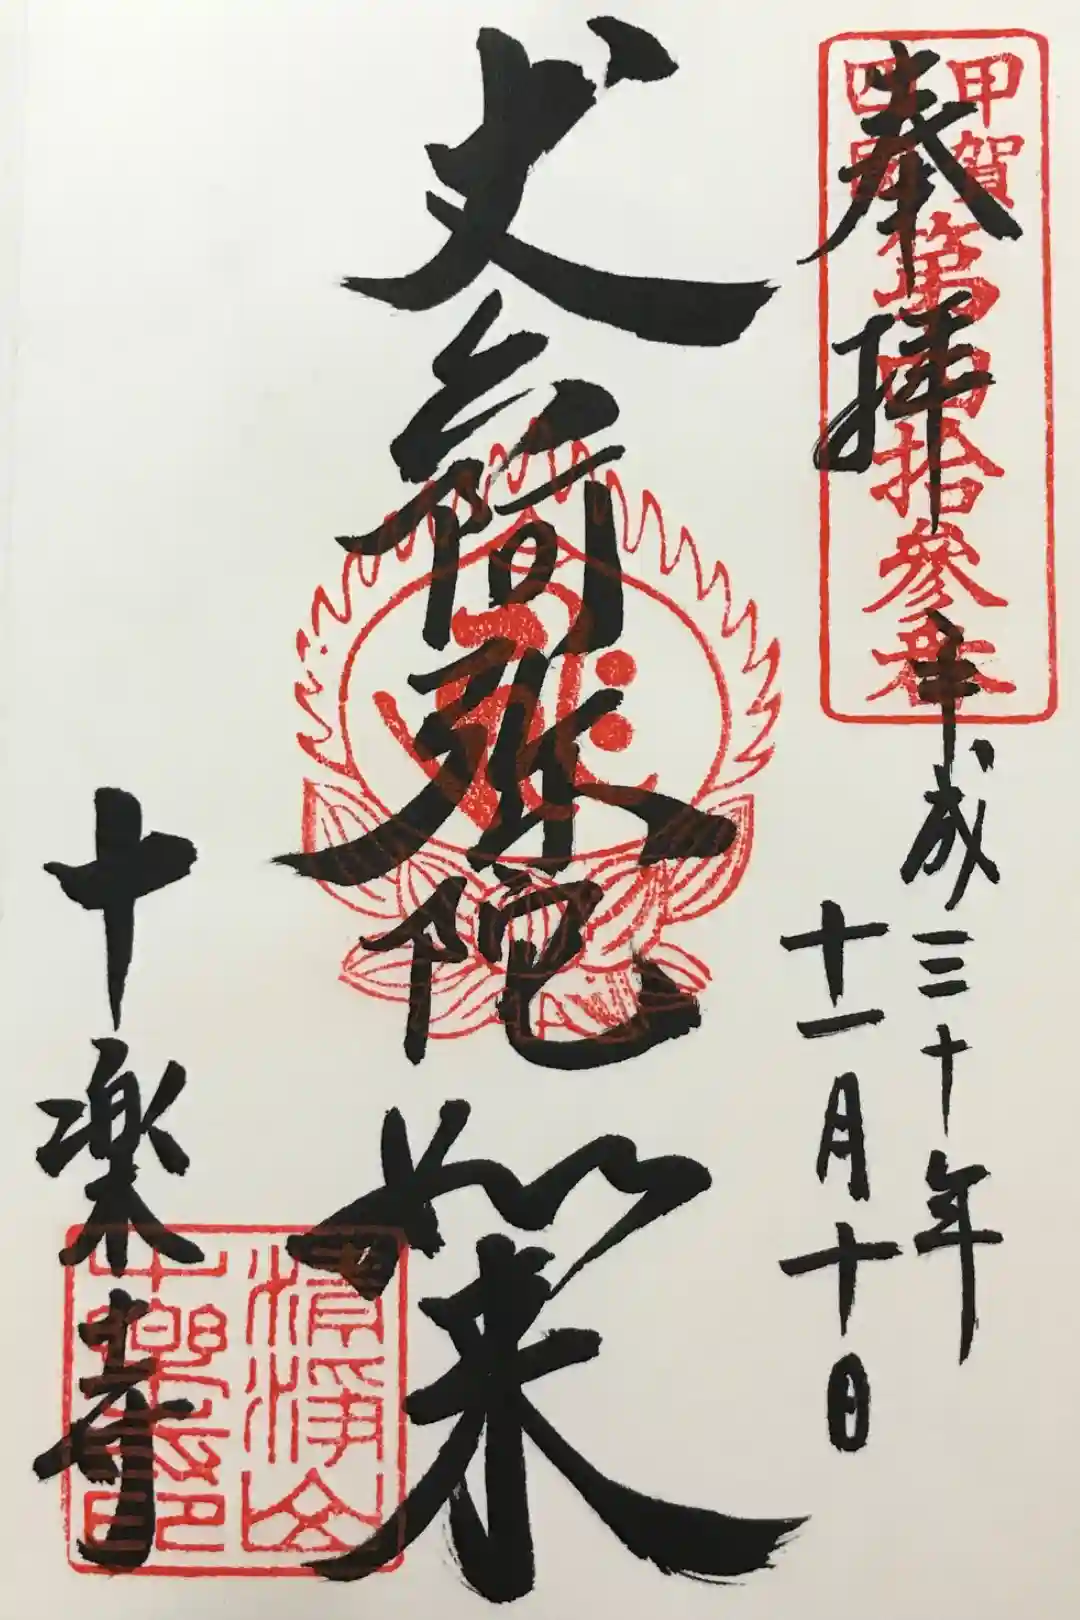 奉拝
甲賀
四国
第四拾参番
平成三十年
十一月十日
丈六阿弥陀
如来
十楽寺
清浄山
十樂寺印